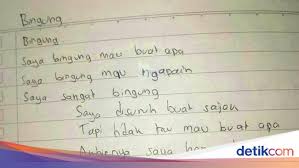 Bingung
Bingung
Saya bingung mau buat apa
Saya bingung mau ngapain
Saya sangat bingung
Saya disuruh buat sajak
Tapi tidak tau mau buat apa
Akhirnya saya
detikcom